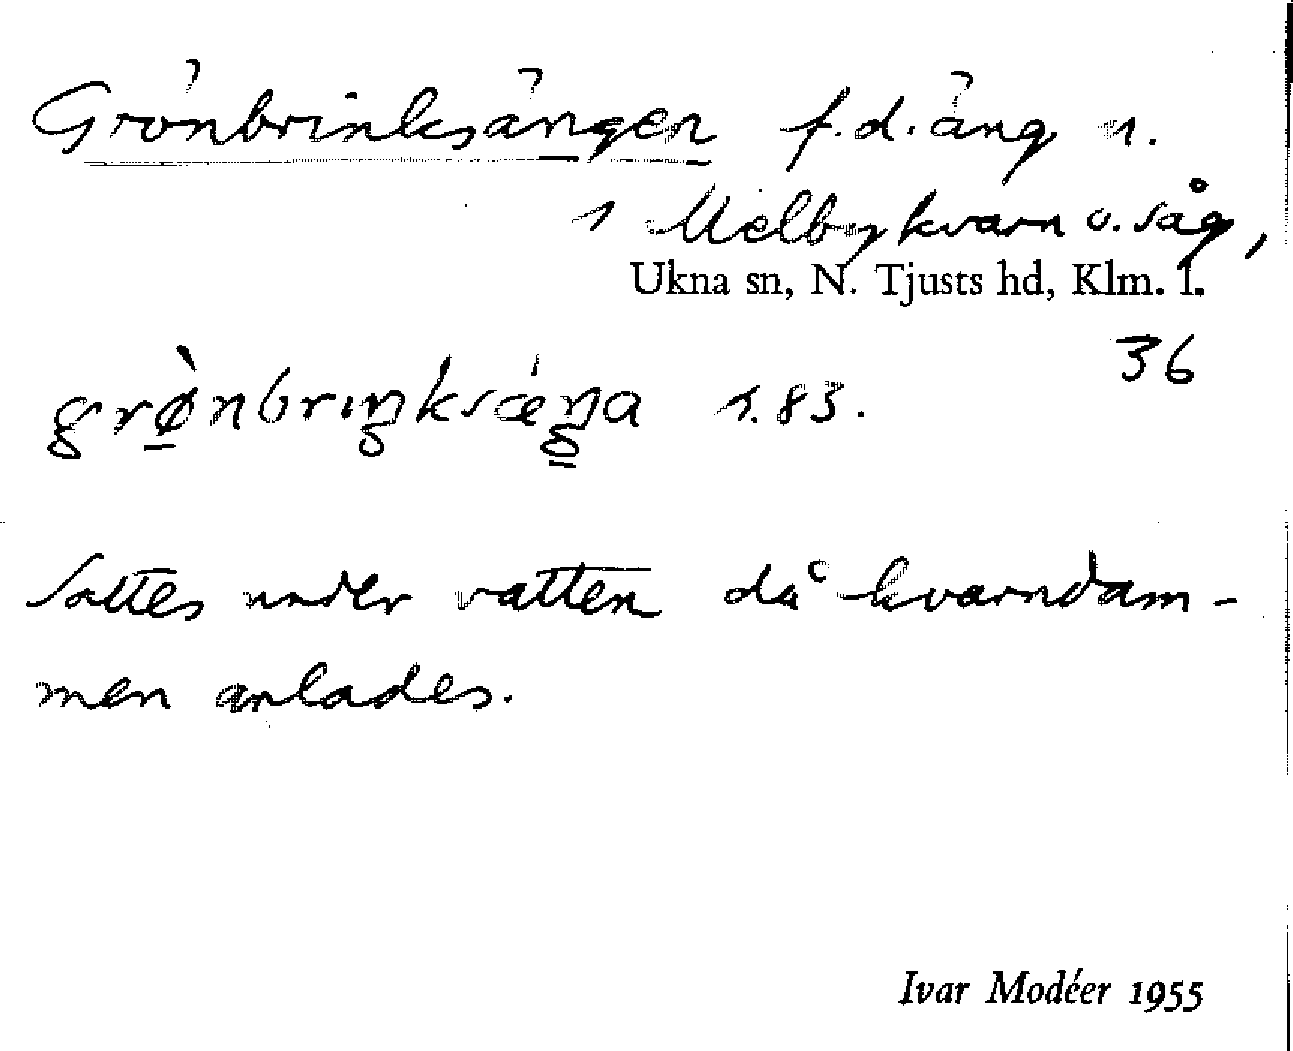 Grönbrinksängen f.d. äng n.
1 Melby kvarn o. såg,
Ukna sn, N. Tjusts hd, Klm. l.
36
grø̀nbriŋksǽŋa 1.83.
Sattes under vatten då kvarndam-
men anlades.
Ivar Modéer 1955